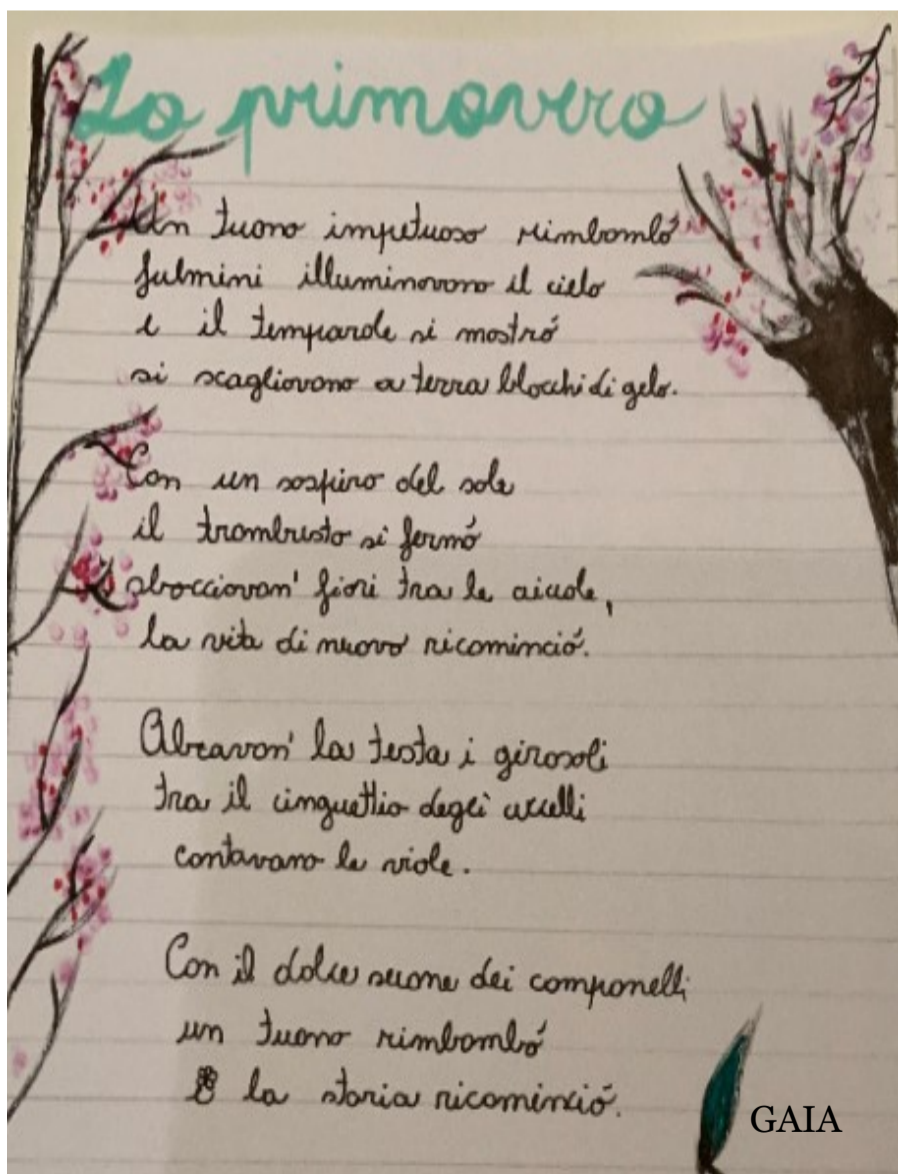 La primavera
Un tuono impetuoso rimbombó
fulmini illuminavano il cielo
e il temparale si mostró
si scagliavano a terra blocchi di gelo.
Con un sospiro del sole
il trambusto si fermó
sbocciavan' fiori tra le aiuole,
la vita di nuovo ricominció.
Alzavan' la testa i girasoli
tra il cinguettio degli uccelli
cantavano le viole.
Con il dolce suono dei campanelli
un tuono rimbombó
e la storia ricominció.
GAIA